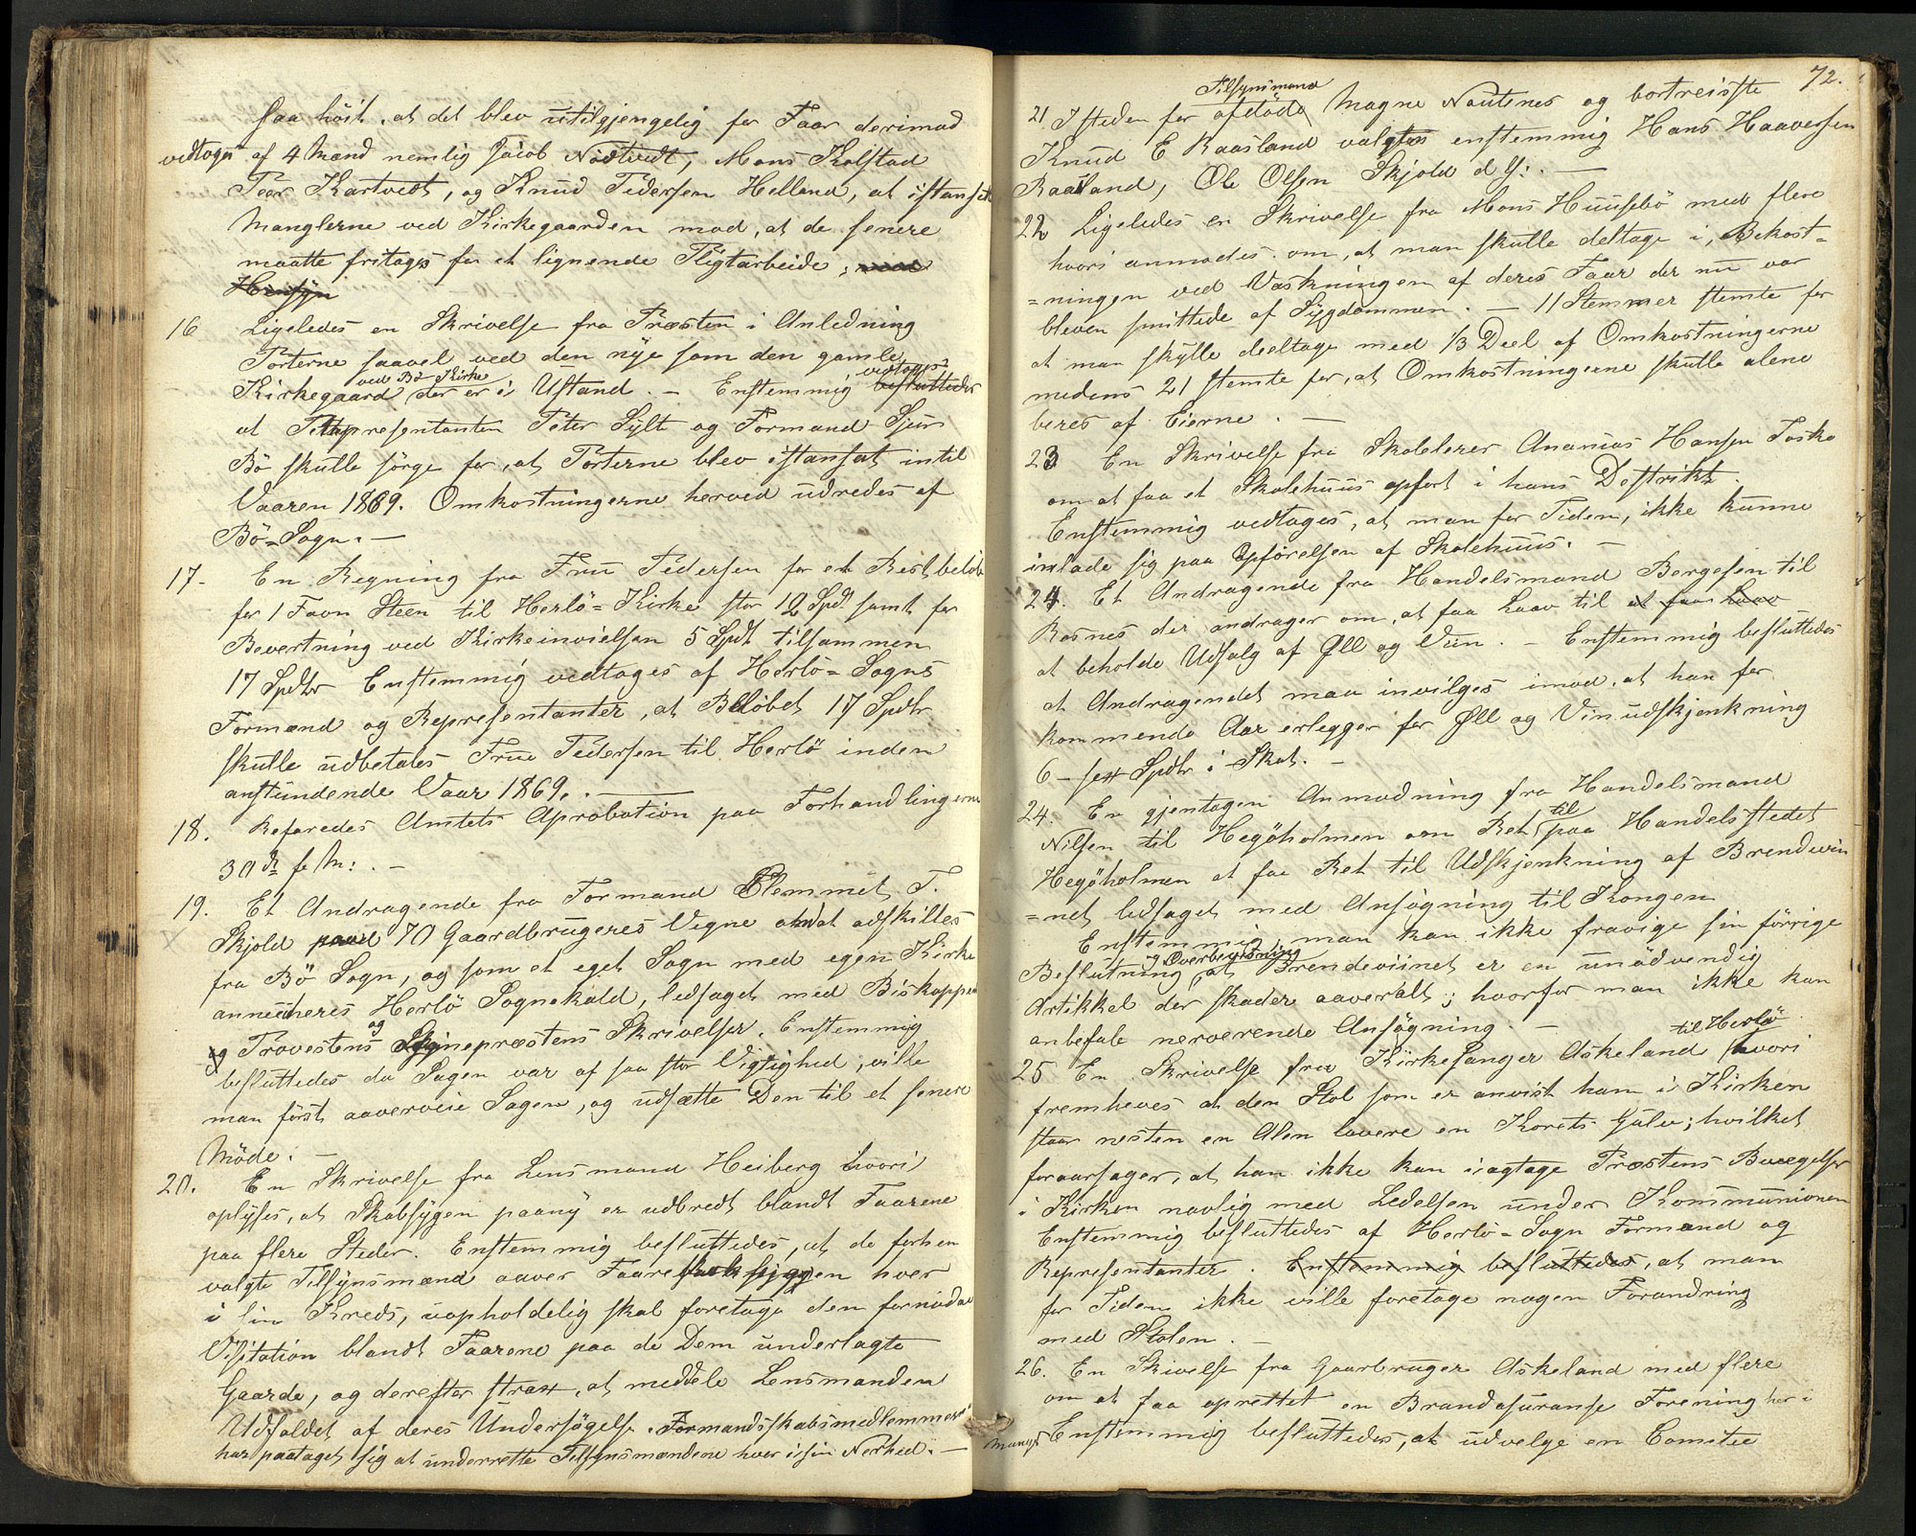 saa höit, at det blev utilgjengelig for Faar derimod
vedtoges af 4 Mænd nemlig Jacob Nödtvedt, Mons Kolstad
Peer Kartvedt, og Knud Pedersen Helland, at istansæt
Manglerne ved Kirkegaarden mod, at de senere
maatte fritages for et lignende Pligtarbeide, med
Hensÿn
16 Ligeledes en Skrivelse fra Præsten i Anledning
Porterne saavel ved den nÿe som den gamle
Kirkegaard ved Bö Kirke der er i Ustand. – Enstemmig vedtoges besluttedes
at Representanten Peter Sÿlte og Formand Sjurs
Bö skulle sörge for, at Porterne blev istansat intil
Vaaren 1869. Omkostningerne herved udredes af
Bö-Sogn. –
17- En Regning fra Fru Pedersen for et Restbelöb
for 1 Favn Steen til Herlö-Kirke stor 12 Spd. samt for
Bevertning ved Kirkeinvielsen 5 Spdl tilsammen
17 Spdlr Enstemmig vedtoges af Herlö-Sogns
Formænd og Representanter, at Belöbet 17 Spdlr
skulle udbetales Frue Pedersen til Herlö inden
anstundende Vaar 1869. –
18. Referedes Amtets Aprobation paa Forhandlingerne
30te f. M: . –
19. Et Andragende fra Formand Clemmet T.
Skjold paa 70 Gaardbrugeres Vegne om at adskilles
fra Bö Sogn, og som et eget Sogn med egen Kirke
anneccheres Herlö Sognekald, ledsaget med Biskoppens
og Provestens og Sognepræstens Skrivelser. Enstemmig
besluttedes da Sagen var af saa stor Vigtighed, ville
man först aaverveie Sagen, og udsætte Den til et senere
Möde. –
20. En Skrivelse fra Lensmand Heiberg hvori
oplÿses, at Skabsÿgen paanÿ er udbredt blandt Faarene
paa flere Steder. Enstemmig besluttedes, at de forhen
valgte Tilsÿnsmænd aaver Faare hver
i sin Kreds, uopholdelig skal foretage den fornödne
Visitation blandt Faarene paa de Dem underlagte
Gaarde, og derefter strax, at meddele Lensmanden
Udfaldet af deres Undersögelse. Formandsskabsmedlemmerne
har paataget sig at underrette Tilsÿnsmændene hver i sin Nerhed. –
72.
21. Isteden for afdöde Tilsynsmand Magne Nautenes og bortreiste
Knud E Raasland valgtes enstemmig Hans Haaversen
Raasland, Ole Olsen Skjold d. y: . –
22 Ligeledes en Skrivelse fra Mons Huusebö med flere
hvori anmodes om, at man skulle deltage i, Bekost-
=ningen ved Vaskningen af deres Faar der nu var
bleven smittede af Sÿgdommen. – 11 Stemmer stemte for
at man skulle deeltage med 1/3 Deel af Omkostningerne
medens 21 stemte for, at Omkostningerne skulle alene
beres af Eierne. –
23 En Skrivelse fra Skolelerer Ananias Hansen Toska
om at faa et Skolehuus opfort i hans Destrikt.
Enstemmig vedtoges, at man for Tiden, ikke kunne
inlade sig paa Opförelsen af Skolehuus. –
24. Et Andragende fra Handelsmand Bergesen til
Rosnes der andrager om, at faa Laav til at faa Laav
at beholde Udsalg af Øll og Viin. – Enstemmig besluttedes
at Andragendet maa invilges imod, at han for
kommende Aar erlegger for Øll og Vinudskjenkning
6 – sex Spdlr i Skat. –
24. En gjentagen Anmodning fra Handelsmand
Nilsen til Hegöholmen om Ret til paa Handelsstedet
Hegöholmen at faa Ret til Udskjenkning af Brendeviin
=net ledsaget med Ansögning til Kongen
Enstemmig man kan ikke fravige sin förrige
Beslutning og Overbeviisning, at Brendeviinet er en unödvendig
Artikkel der skader aaveralt; hvorfor man ikke kan
anbefale nerverende Ansögning. –
25 En Skrivelse fra Kirkesanger Askeland til Herlö hvori
fremheves at den Stol som er anvist ham i Kirken
staar nesten en Alen lavere en Korets Gulv; hvilket
foraarsager, at han ikke kan iagtage Præstens Bevegelser
i Kirken navlig med Ledelsen under Kommunionen
Enstemmig besluttedes af Herlö-Sogn Formænd og
Representanter. Enstemmig besluttedes, at man
for Tiden ikke ville foretage nogen Forandring
med Stolen. –
26. En Skivelse fra Gaarbruger Askeland med flere
om at faa oprettet en Brandasuranse Forening her i
Enstemmig besluttedes, at udvelge en Comitee